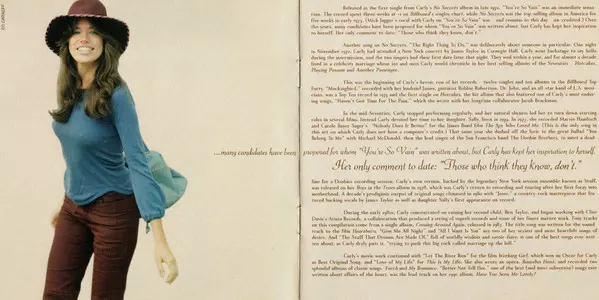 Released as the first single from Carly's No Secrets album in late 1972, "You're So Vain" was an immediate sensa-
tion. The record spent three weeks at #1 on Billboard's singles chart, while No Secrets was the top-selling album in America for
five weeks in early 1973. (Mick Jagger's vocal with Carly on "You're So Vain" was and remains to this day un-credited.) Over
the years, many candidates have been proposed for whom "You're So Vain" was written about, but Carly has kept her inspiration
to herself. Her only comment to date: "Those who think they know, don't."
Another song on No Secrets, "The Right Thing To Do," was deliberately about someone in particular. One night
in November 1971, Carly had attended a New York concert by James Taylor in Carnegie Hall. Carly went backstage to say hello
during the intermission, and the two singers had their first date later that night. They wed within a year, and for almost a decade
lived in a celebrity marriage whose joy and woes Carly would chronicle in her best-selling albums of the Seventies Hotcakes,
Playing Possum and Another Passenger.
This was the beginning of Carly's heroic run of hit records twelve singles and ten albums in the Billboard Top
Forty. "Mockingbird," recorded with her husband James, guitarist Robbie Robertson, Dr. John, and an all-star band of L.A. musi-
cians, was a Top Ten record in 1974 and the first single on Hotcakes, the hit album that also featured one of Carly's most endur-
ing songs, "Haven't Got Time For The Pain," which she wrote with her longtime collaborator Jacob Brackman.
In the mid-Seventies, Carly stopped performing regularly, and her natural shyness led her to turn down starring
roles in several films. Instead Carly devoted her time to her daughter, Sally, born in 1974. In 1977, she recorded Marvin Hamlisch
and Carole Bayer Sager's "Nobody Does It Better" for the James Bond film The Spy Who Loved Me. (This is the only song in
this set on which Carly does not have a composer's credit.) That same year she dashed off the lyric to the great ballad "You
Belong To Me" with Michael McDonald, then the lead singer of the San Francisco band The Doobie Brothers, to meet a dead-
...many candidates have been proposed for whom "You're So Vain" was written about, but Carly has kept her inspiration to herself.
Her only comment to date: "Those who think they know, don't."
line for a Doobies recording session. Carly's own version, backed by the legendary New York session ensemble known as Stuff,
was released on her Boys in the Trees album in 1978, which was Carly's return to recording and touring after her first foray into
motherhood. A decade's prodigious output of original songs climaxed in 1980 with "Jesse," a country-rock masterpiece that fea-
tured backing vocals by James Taylor as well as daughter Sally's first appearance on record.
During the early 1980s, Carly concentrated on raising her second child, Ben Taylor, and began working with Clive
Davis's Arista Records, a collaboration that produced a string of superb records and some of her finest mature work. Four tracks
on this compilation come from a single album, Coming Around Again, released in 1987. The title song was written for the sound-
track to the film Heartburn. "Give Me All Night" and "All I Want Is You" are two of her sexiest and most heartfelt songs of
desire. And "The Stuff That Dreams Are Made Of," full of worldly wisdom and savoir-faire, is one of the best songs ever writ-
ten about, as Carly drily puts it, "trying to push this big rock called marriage up the hill."
Carly's movie work continued with "Let The River Run" for the film Working Girl, which won an Oscar for Carly
as Best Original Song, and "Love of My Life" for This Is My Life. She also wrote an opera, Romulus Hunt, and recorded two
splendid albums of classic songs, Torch and My Romance. "Better Not Tell Her," one of the best (and most subversive) songs ever
written about affairs of the heart, was the lead track on her 1990 album, Have You Seen Me Lately?